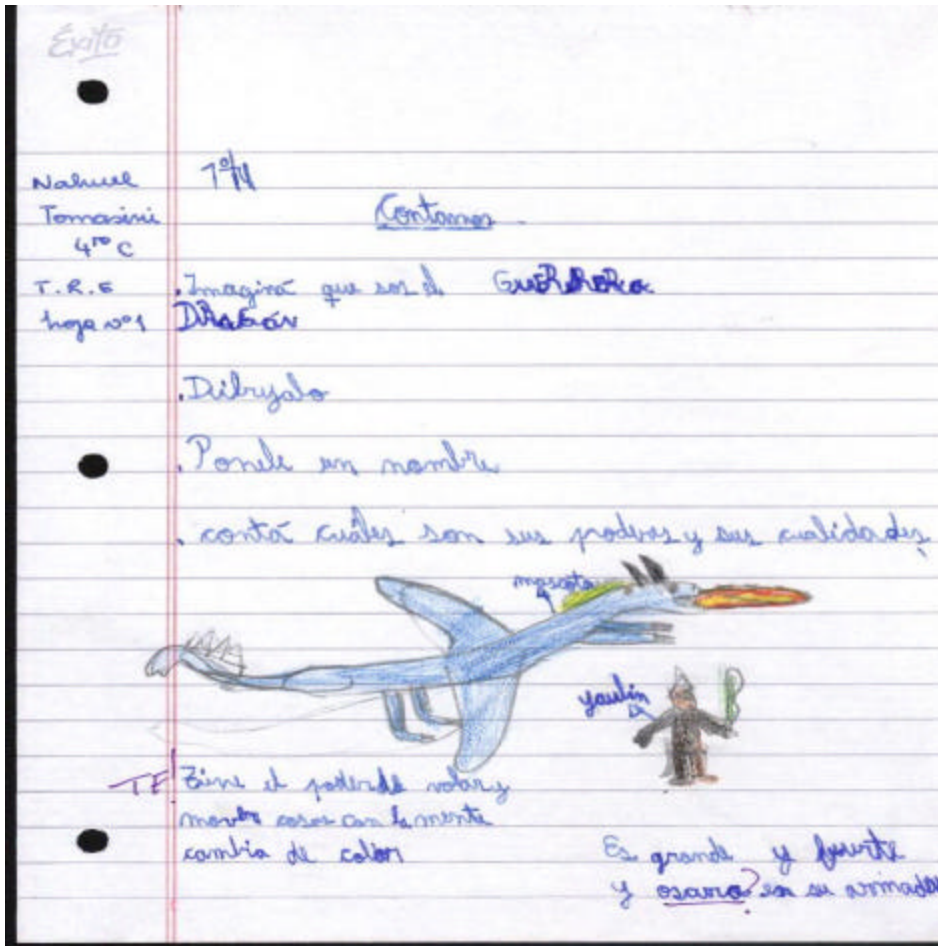 Éxito
Nahuel
Tomasini
4to C
T.R.E
hoja nº1
Contamos.
.Imaginá que sos el
Dragón
.Dibujalo
.Ponele un nombre
.contá cuáles son sus poderes y sus cualidades
mascota
yaulin
TE!
Tiene el poder de volar y
mover cosas con la mente
cambia de color
Es grande y fuerte
y osano? en su armadur